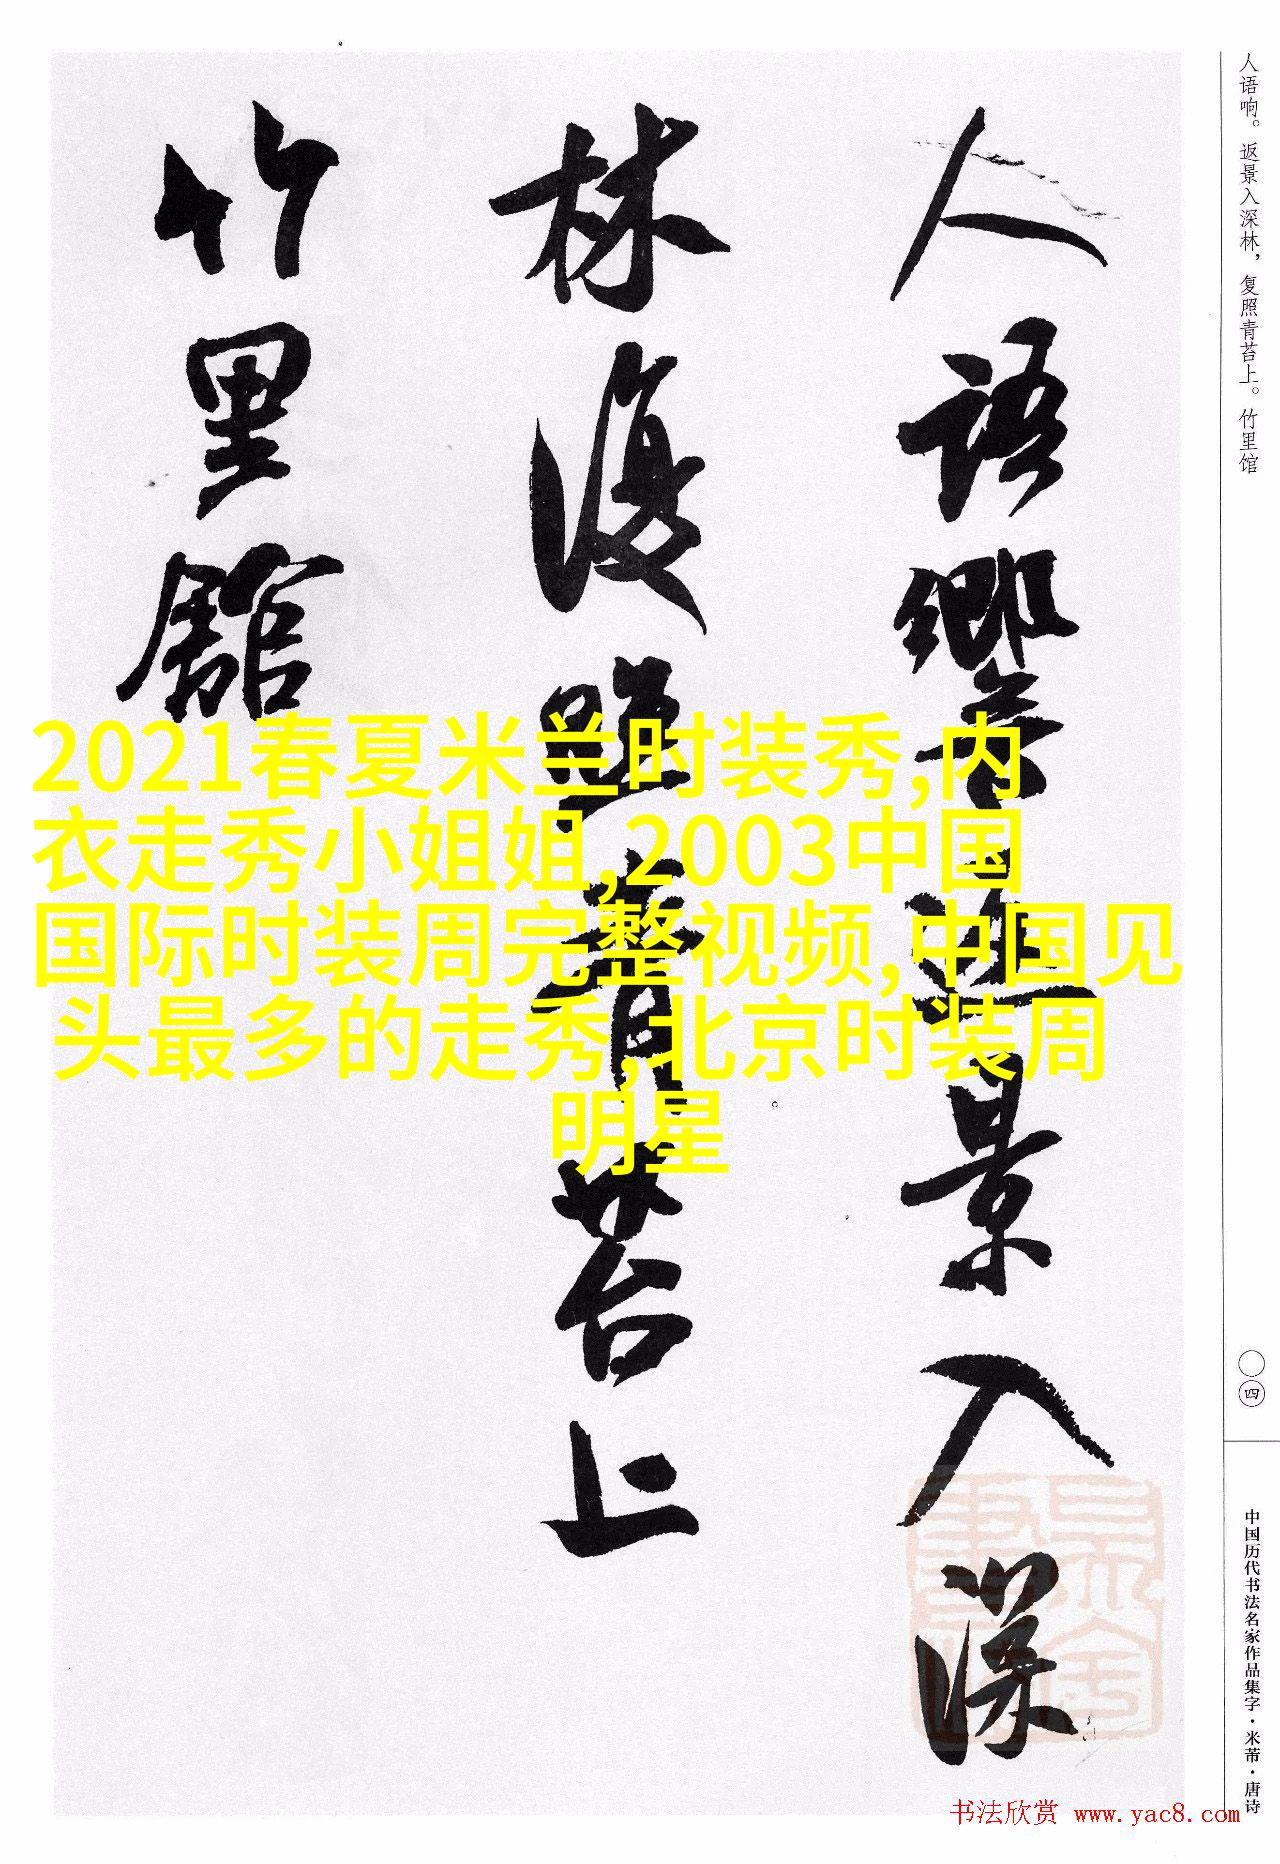 人语响。返景入深林，复照青苔上。竹里馆
人語響返景入深
林復照青苔上
竹里館
2021春夏米兰时装秀,内
衣走秀小姐姐,2003中国
国际时装周完整视频,中国见
头最多的走秀,北京时装周
明星
〇四
中国历代书法名家作品集字·米芾·唐诗
书法欣赏 www.yac8.com